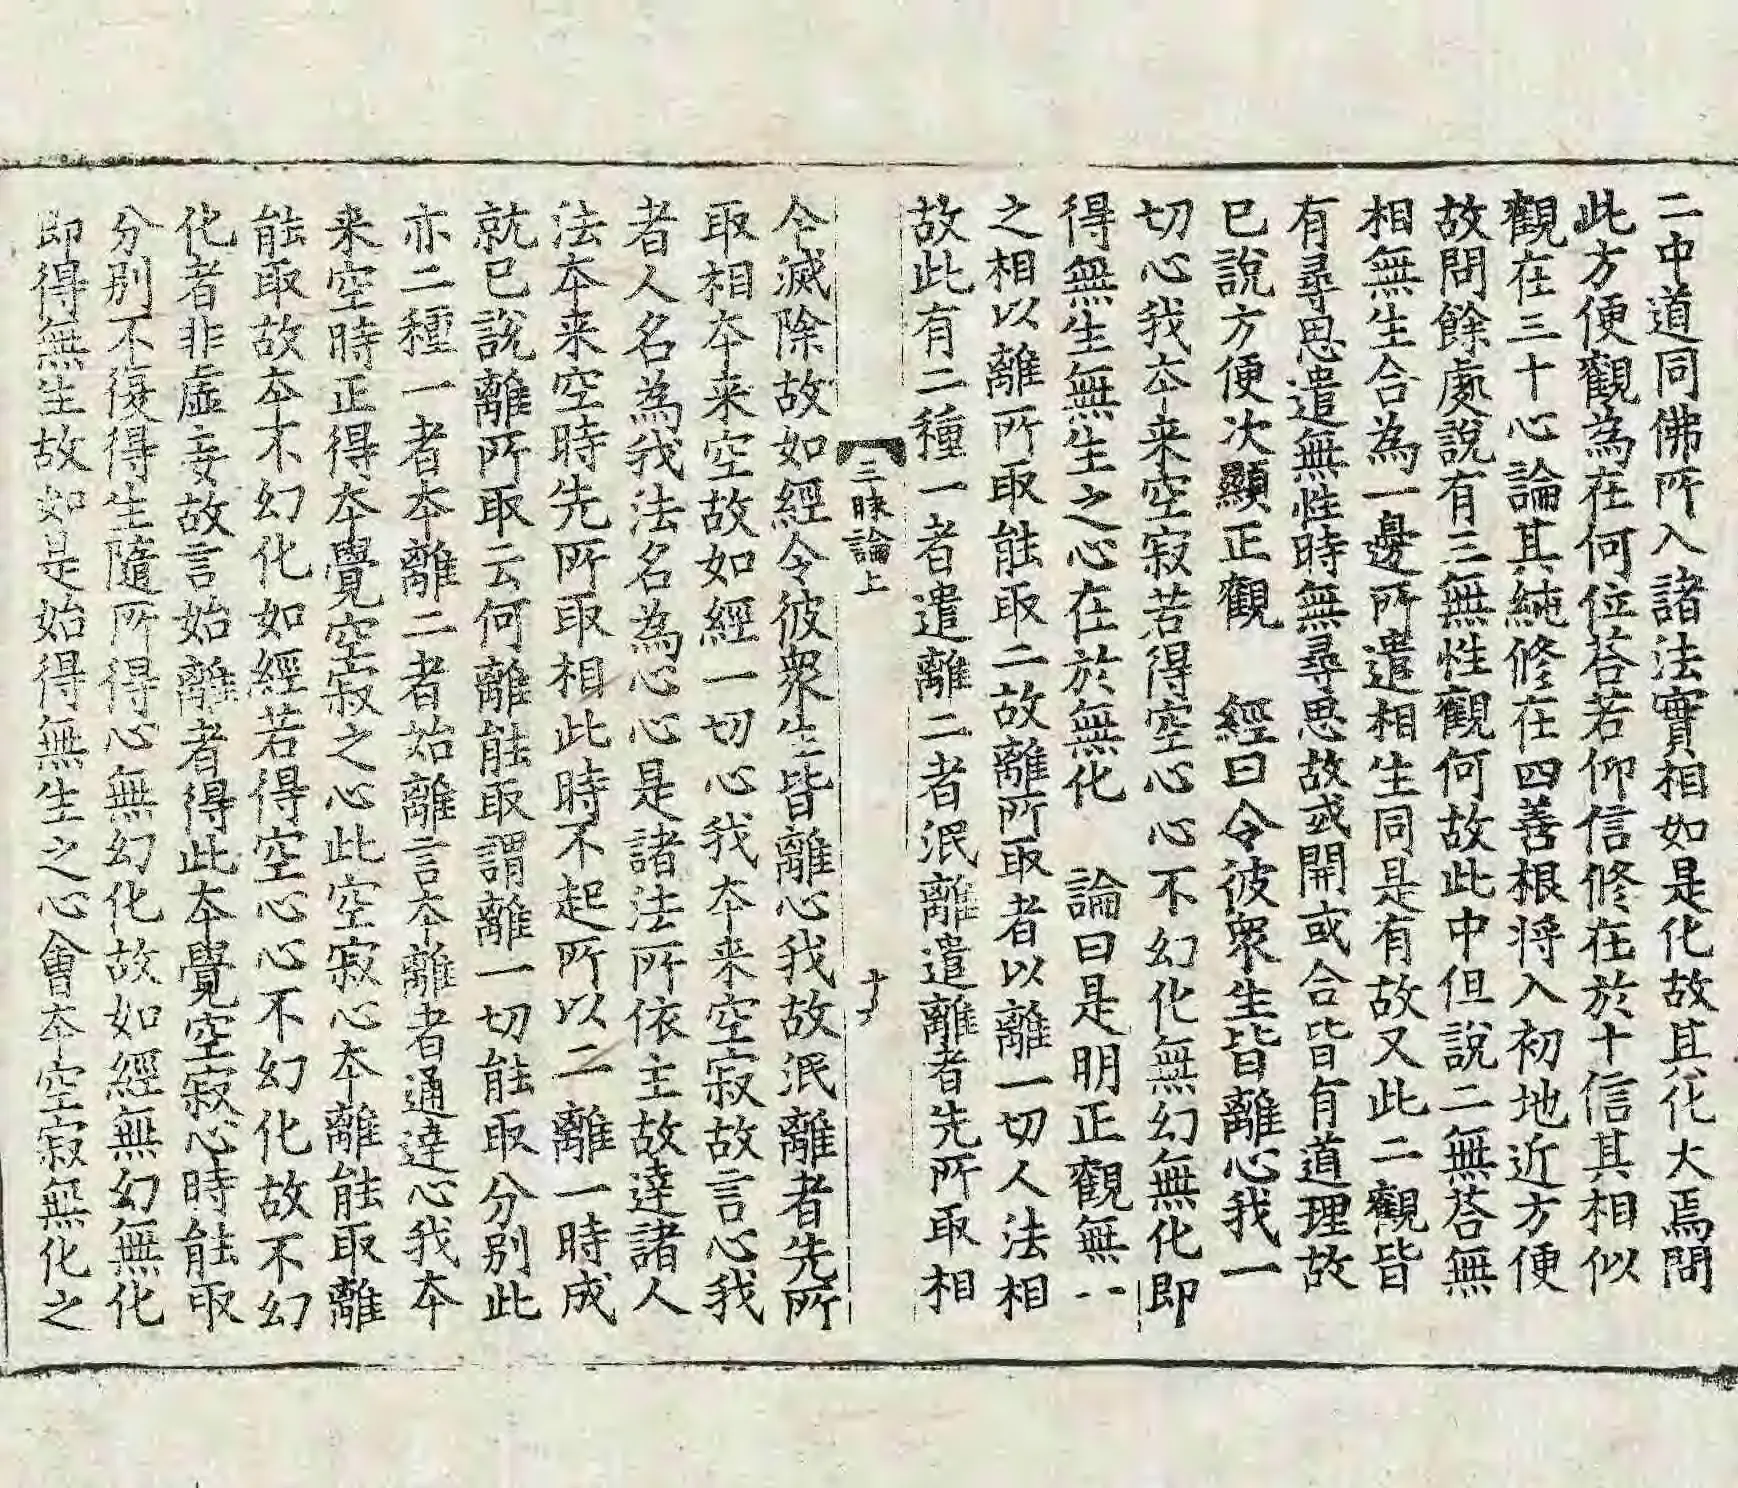 二中道同佛所入諸法實相如是化故其化大焉問
此方便觀為在何位荅若仰信修在於十信其相似
觀在三十心論其純修在四善根将入初地近方便
故問餘處說有三無性觀何故此中但說二無荅無
相無生合為一邊所遣相生同是有故又此二觀皆
有尋思遣無性時無尋思故或開或合皆有道理故
已說方便次顯正觀　經曰令彼衆生皆離心我一
切心我夲来空寂若得空心心不幻化無幻無化即
得無生無生之心在於無化　論曰是明正觀無二
之相以離所取能取二故離所取者以離一切人法相
故此有二種一者遣離二者泯離遣離者先所取相
三昧論上
十
今滅除故如經令彼衆生皆離心我故泯離者先所
取相夲来空故如經一切心我夲来空寂故言心我
者人名為我法名為心心是諸法所依主故達諸人
法夲来空時先所取相此時不起所以二離一時成
就已說離所取云何離能取謂離一切能取分別此
亦二種一者夲離二者始離言夲離者通達心我夲
来空時正得夲覺空寂之心此空寂心夲離能取離
能取故夲不幻化如經若得空心心不幻化故不幻
化者非虛妄故言始離者得此夲覺空寂心時能取
分別不復得生隨所得心無幻化故如經無幻無化
即得無生故如是始得無生之心會夲空寂無化之